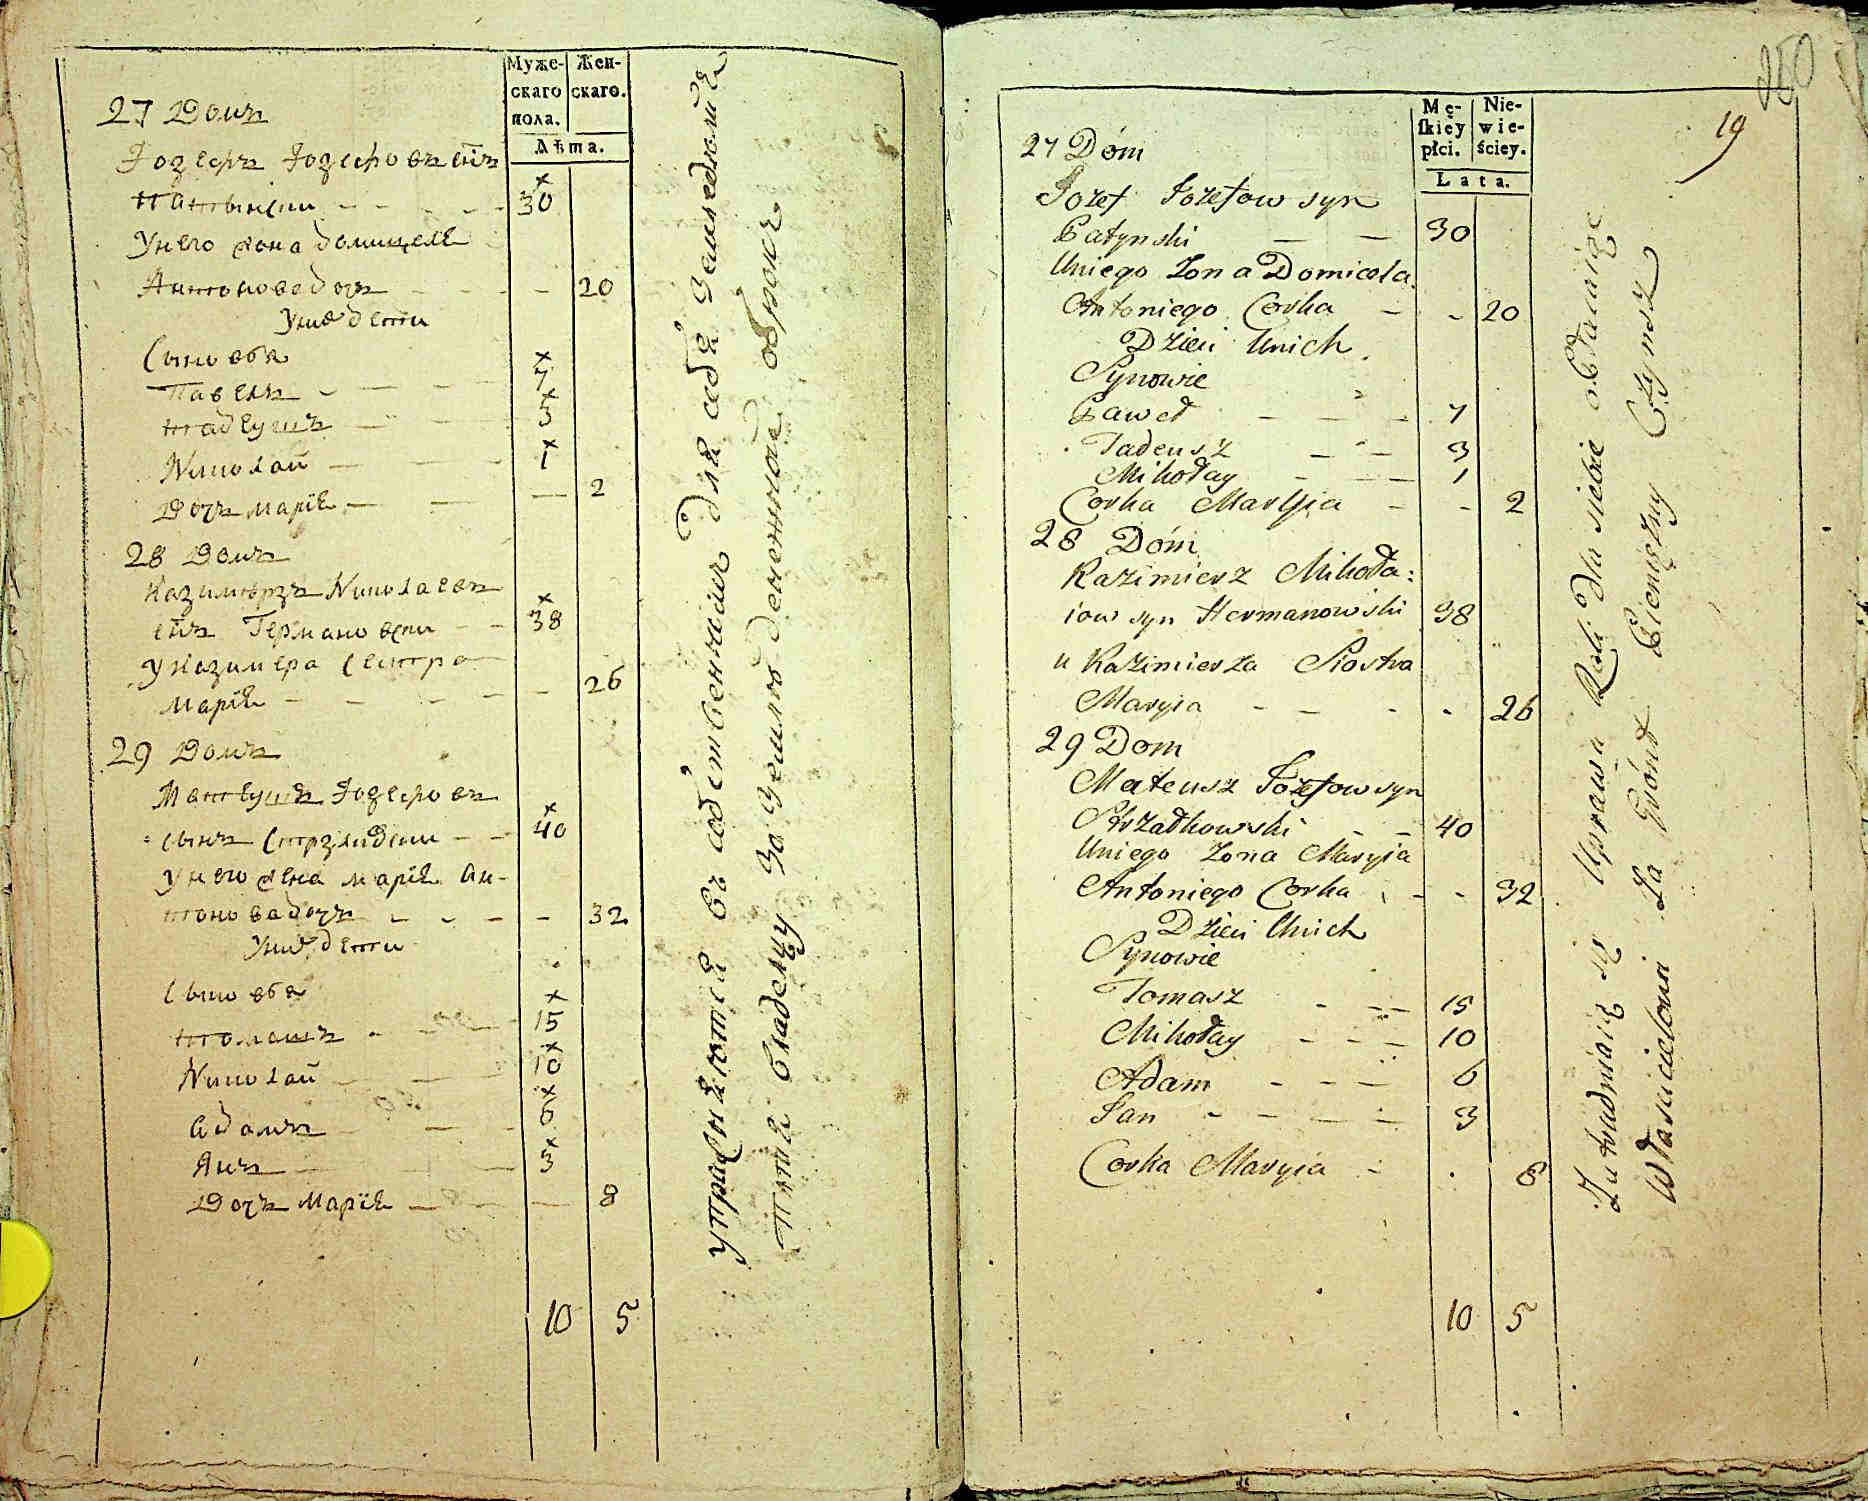 Муже- Жен-
скаго скаго.
пола.
Лѣта.
27 Домъ
Іозефъ Іозефовъ сынъ
Патынски - - - - 30
У него жона Домицеля
Антонова дочъ - - - 20
У них дети
Сыновья
Павелъ - - - - 7
Тадеушъ - - - 3
Николай - - - 1
Дочъ Марія - - - 2
28 Домъ
Казимѣрзъ Николаевъ
сынъ Германовски - - 38
У Казимера сестра
Марія - - - - - 26
29 Домъ
Матеушъ Іозефовъ
сынъ Стрзалковски - - 40
У него жена Марія Ан-
тонова дочъ - - - - - 32
У них дети
Сыновья
Томашъ - - - 15
Николай - - - 10
Адамъ - - - 6
Янъ - - - 3
Дочъ Марія - - - 8
10 5
упражняются въ собственном для себя земледелія
платя владелцу за землю денежной оброкъ
250
19
Mę- Nie-
skiey wie-
płci. ściey.
Lata.
27 Dóm
Jozef Jozefow syn
Patynski - - 30
Uniego Zona Domicela
Antoniego Corka - - 20
Dzieci Unich
Synowie
Paweł - - - - 7
Tadeusz - - - 3
Mikołay - - - - 1
Corka Maryia - - 2
28 Dóm
Kazimierz Mikoła:
iow syn Hermanowski 38
u Kazimierza Siostra
Maryia - - - - 26
29 Dom
Mateusz Jozefow syn
Strzałkowski - - 40
Uniego Zona Maryia
Antoniego Corka - - 32
Dzieci Unich
Synowie
Tomasz - - - 15
Mikołay - - - 10
Adam - - - 6
Jan - - - - 3
Corka Maryia - . 8
10 5
Zatrudniaią się Uprawą Roli dla siebie
Właścicielowi Za Grónt Pieniężny Czynsz